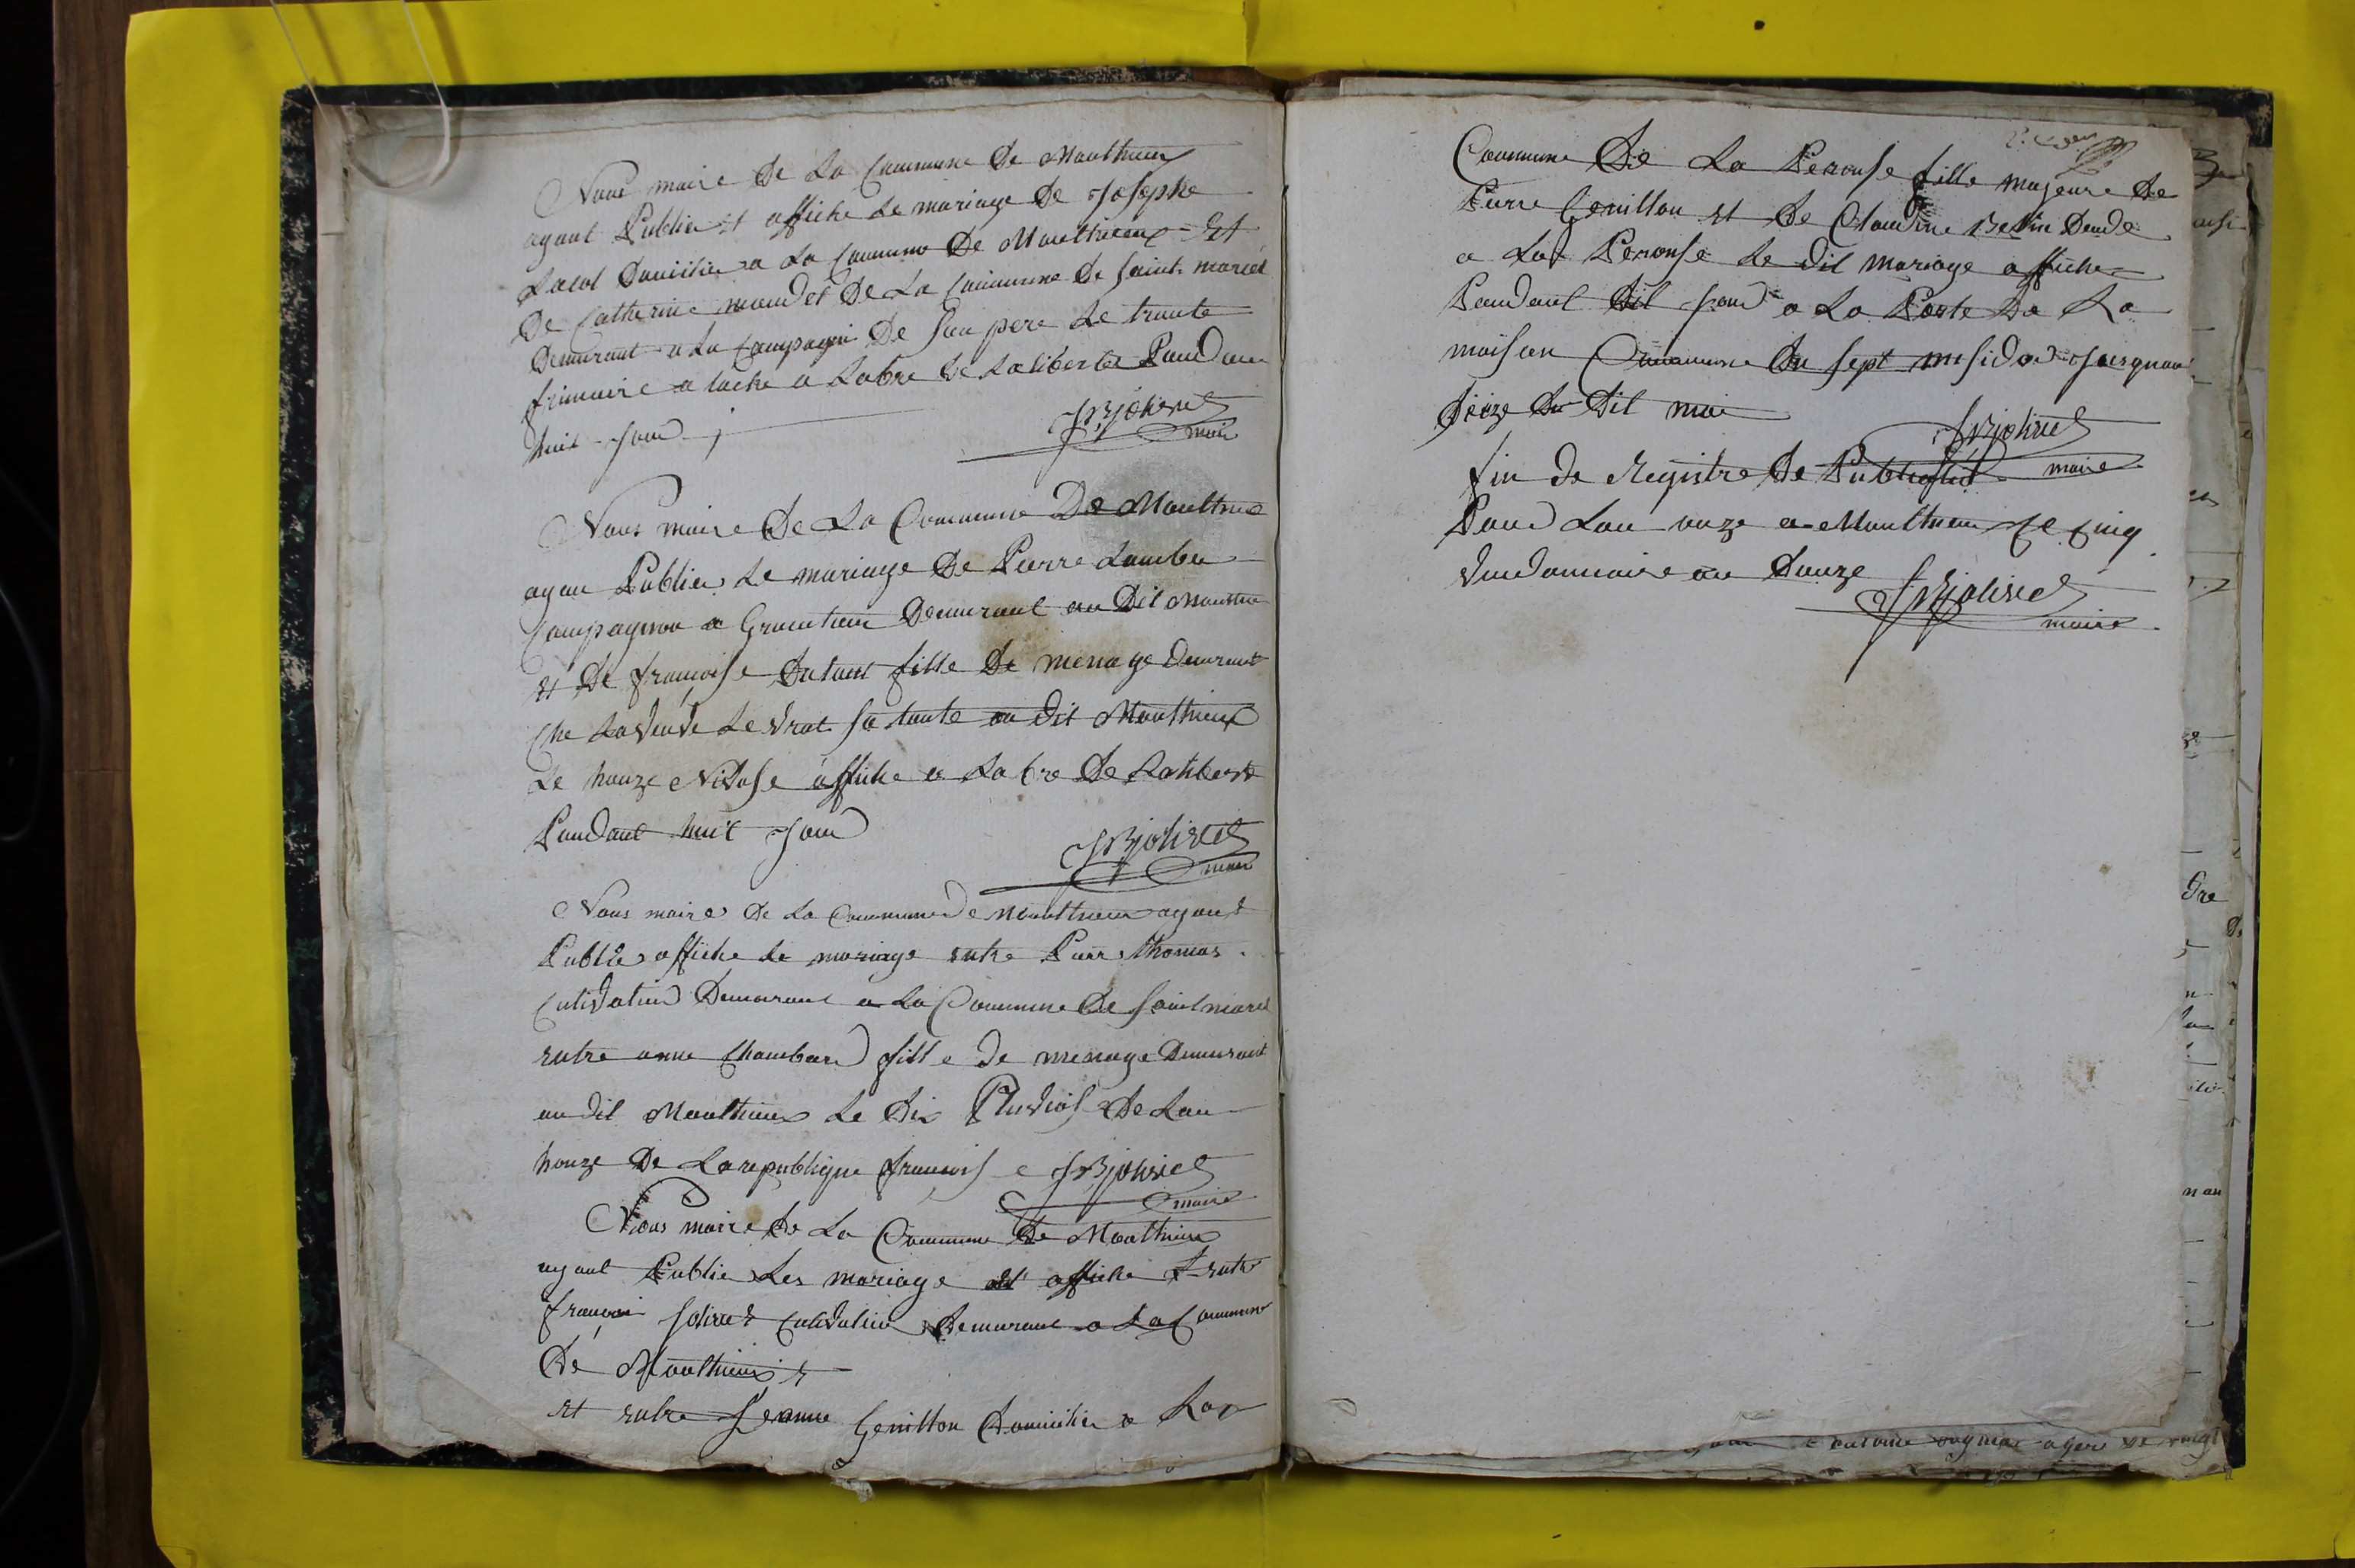 Nous maire De La Commune De Monthieux
ayant Publier et affiche Le mariage De Josephe
Lacol Domicilier a La Commune De Monthieux Et
De Catherine moudet De La Commune De Saint marcel
Demurant a La Campagni De Son pere Le trante
frimaire a tache a Labre De La liberte Pandan
huit Jour
JBjolivet
maire
Nous maire De La Commune De Monthieux
ayan Publier Le mariage De Pierre Lambe
Campagnon a Demurant au Dit Monthieux
et De françoise Dutant fille De menage Demurant
Che La Veuve Le Vrat Sa tante au Dit Monthieux
Le honze Nivose affiche a Labre De Laliberte
Pandant huit Jour
JBjolivet
maire
Nous maire De La Commune De Monthieux ayant
Publier affiche Le mariage entre Pierre thomas
Cultivatieur Demurant a La Commune De Saint marcel
entre anne Chambard fille De menage Demurant
au dit Monthieux Le Dix Pluviose De Lan
honze De La republique françoise JBjolivet
maire
Nous maire De La Commune De Monthieux
ayant Publier Les mariage et affiche Entre
françoi Jolivet Cultivatieur Demurant a La Commune
De Monthieux
et entre Jeanne Genillon Domicilier a La
Commune De La Perouse fille majeure De
Pierre Genillon et De Claudine
a La Perouse Le dit mariage affiche
Pandant Dit Jour a La Porte De La
maison Commune Du Sept mesidor Jusquau
Seize Du Dit moi
JBjolivet
maire
fin de Registre De Publication
Pour Lan onze a Monthieux Ce Cinq
Vandemiaire an Douze
JBjolivet
maire